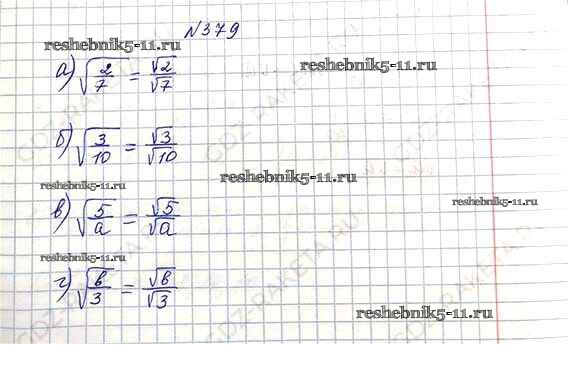 №379
reshebnik5-11.ru
reshebnik5-11.ru
а) √(2/7) = √2/√7
б) √(3/10) = √3/√10
reshebnik5-11.ru
reshebnik5-11.ru
в) √(5/a) = √5/√a
reshebnik5-11.ru
reshebnik5-11.ru
г) √(b/3) = √b/√3
reshebnik5-11.ru
GDZ-RAKETA.RU
GDZ-RAKETA.RU
GDZ-RAKETA.RU